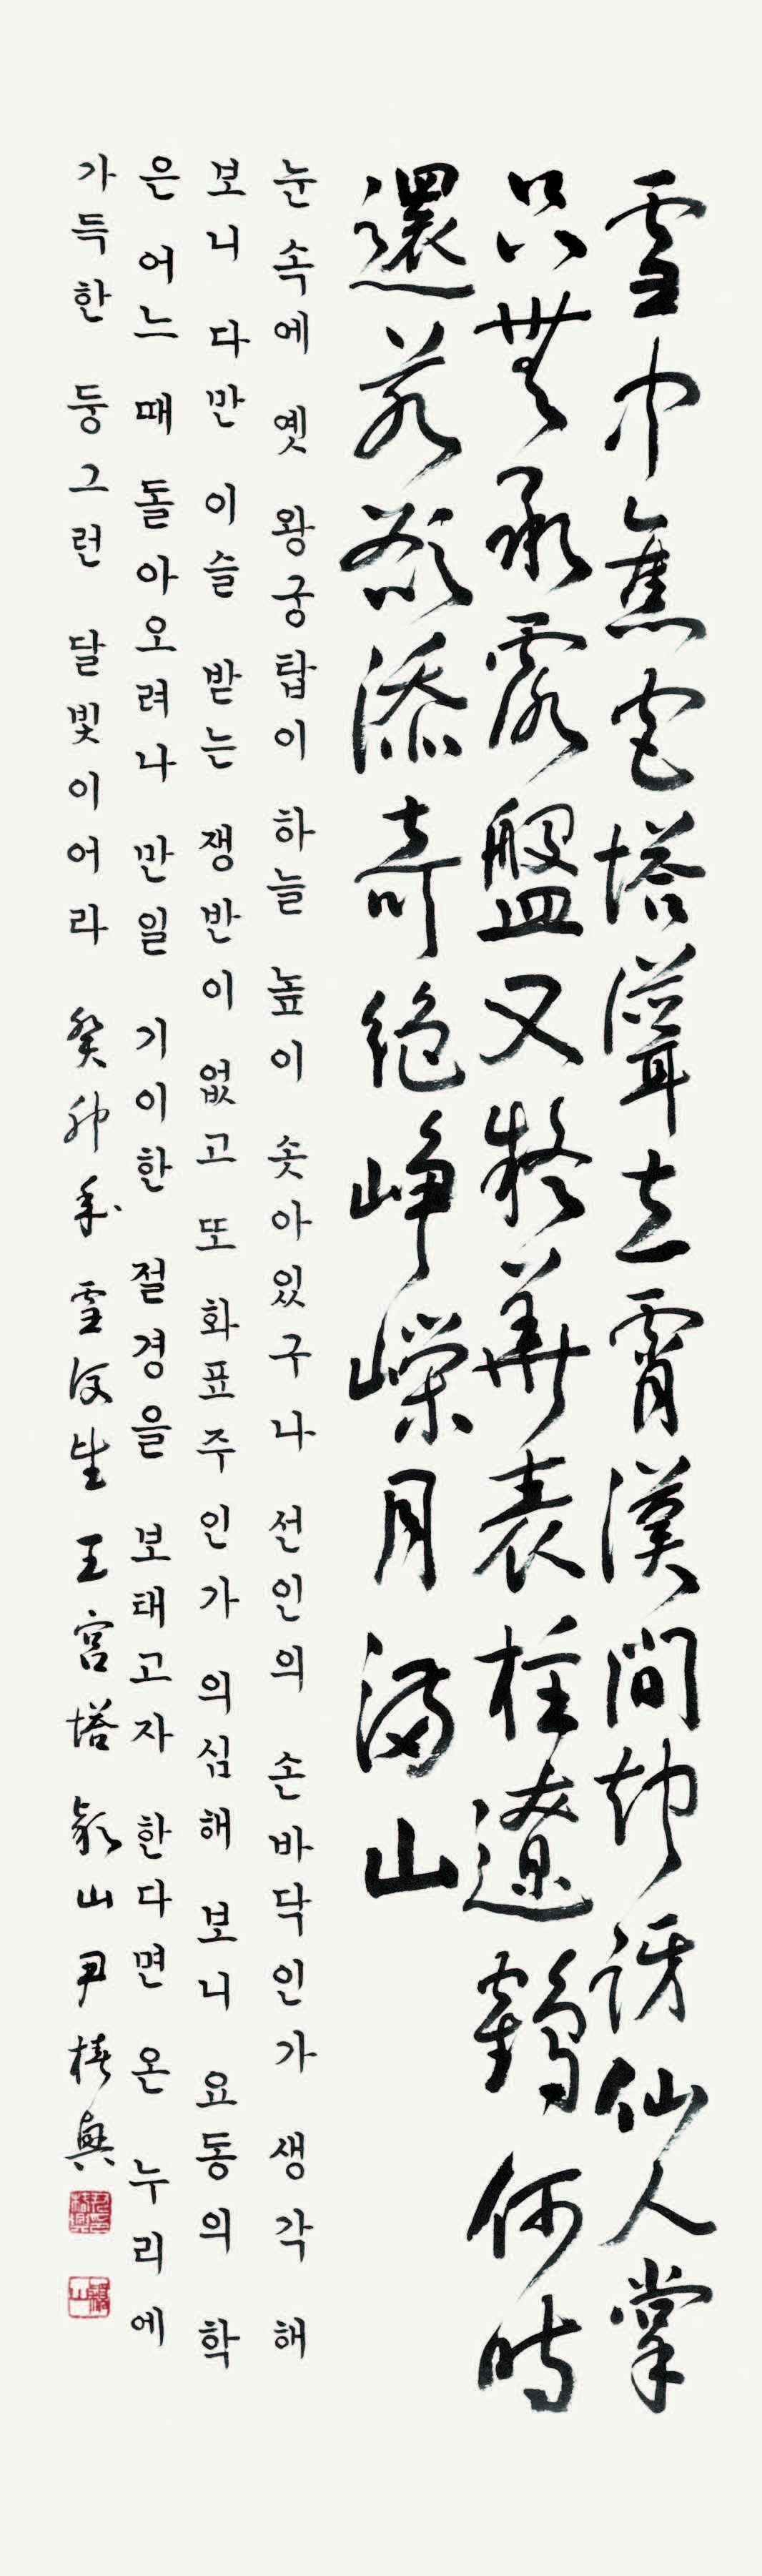 雪中舊宮塔聳立霄漢間却訝仙人掌
只無承露盤又疑華表柱遼鶴何時
還若欲添奇絶崢嶸月滿山
눈 속에 옛 왕궁탑이 하늘 높이 솟아있구나 선인의 손바닥인가 생각 해
보니 다만 이슬 받는 쟁반이 없고 또 화표주인가 의심해 보니 요동의 학
은 어느 때 돌아오려나 만일 기이한 절경을 보태고자 한다면 온 누리에
가득한 둥그런 달빛이어라 癸卯 雪 王宮塔 山 尹椿興